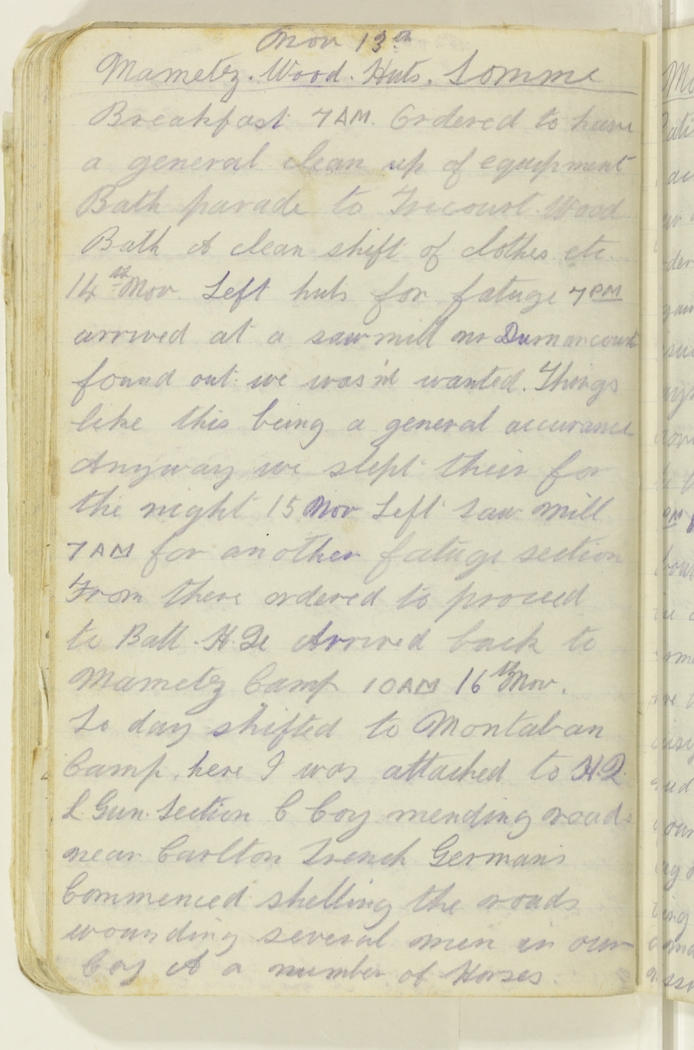 Nov 13th
Mametz. Wood. Huts. Somme
Breakfast 7AM. Ordered to have
a general clean up of equipment
Bath parade to Fricourt Wood
Bath & clean shift of clothes etc.
14th Nov. Left huts for fatuge 7PM
arrived at a sawmill nr Durnancourt
found out we was'nt wanted. Things
like this being a general accurance
Anyway we slept their for
the night 15 Nov Left Saw Mill
7AM for another fatuge section
From there ordered to proceed
to Batt. H.Qe Arrived back to
Mametz Camp 10AM 16th Nov.
To day shifted to Montaban
Camp, here I was attached to H.Q.
L Gun. Section C Coy mending roads
near Carlton Trench Germans
Commenced shelling the roads
wounding several men in our
Coy & a number of Horses.